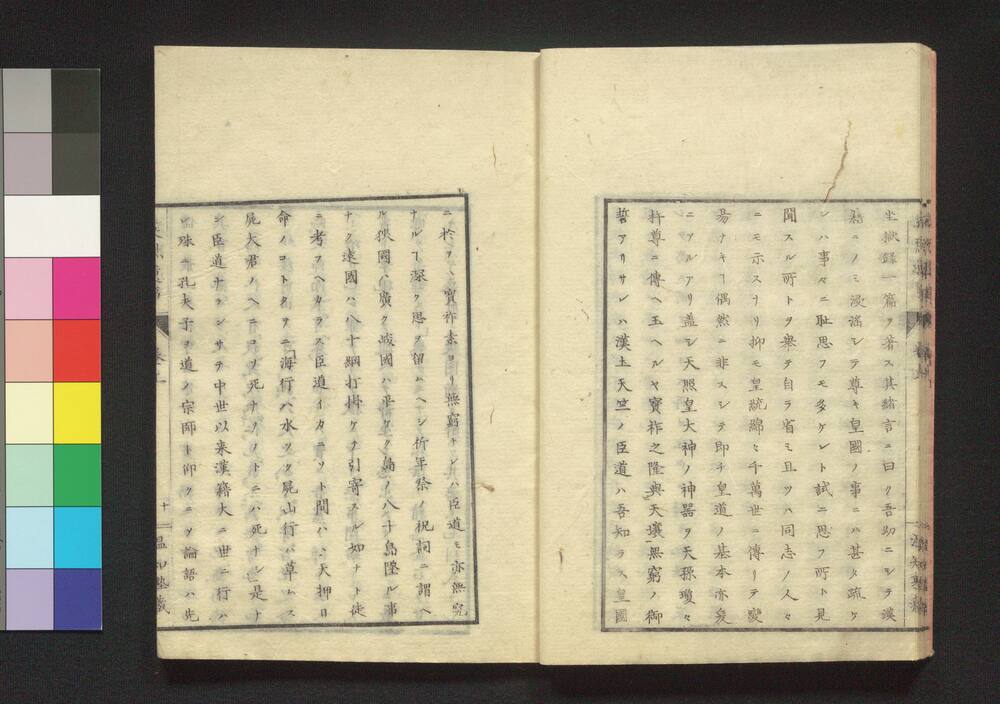 坐獄錄一篇ヲ著ス其緒言ニ曰ク吾幼ニシテ漢
籍ニノミ浸淫シテ尊キ皇國ノ事ニハ甚タ疏ケ
レハ事々ニ耻思フモ多ケレト試ニ思フ所ト見
聞スル所トヲ擧テ自ラ省ミ且ツハ同志ノ人々
ニモ示スナリ抑モ皇統綿々千萬世ニ傳リテ變
易ナキヿ偶然ニ非スシテ即チ皇道ノ基本亦爰
ニアルアリ蓋シ天照皇大神ノ神器ヲ天孫瓊々
杵尊ニ傳ヘ玉ヘルヤ寶祚之隆與天壤無窮ノ御
誓アリサレハ漢土天竺ノ臣道ハ吾知ラス皇國
ニ於テハ寶祚素ヨリ無窮ナレハ臣道モ亦無窮
ナルヿ深ク思ヲ留ムヘシ祈年祭ノ祝詞ニ謂ヘ
ル狹國ハ廣ク峻國ハ平ケク島ノ八十島墮ル事
ナク遠國ハ八十綱打掛ケテ引寄スル如ナト徒
ニ考フヘカラス臣道イカニソト問ハヽ天押日
命ノコトタテニ「海行ハ水ツク屍山行ハ草ムス
屍大君ノヘニコソ死ナメノトニハ死ナシ是ナ
ン臣道ナランサテ中世以来漢籍大ニ世ニ行ハ
レ殊ニ孔夫子ヲ道ノ宗師ト仰クニソ論語ハ先
十
温知塾藏